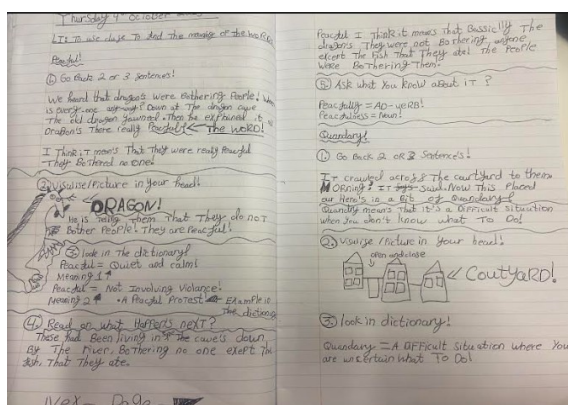 Thursday 4th October
LI: To use clues To find The meaning of the word
Peaceful!
① Go Back 2 or 3 Sentences!
We heard that dragon's were Bothering People!
is every-one Down at The dragon cave
The old dragon yawned. Then he explained it
Dragon's There really Peaceful! The WORD!
I Think it mean's That They were really Peaceful
-They Bothered no one!
②. Visualise/Picture in your head!
DRAGON!
He is telling them That They do not
Bother People! They are Peaceful!
③. look in The dictionary!
Peaceful = Quiet and calm!
Meaning 1
Peaceful = Not Involving Violance!
Meaning 2 • A Peaceful Protest Example in
The dictionary
④. Read on what Happen's next?
These had Been living in The cave's down
By The river, Bothering no one exept The
fish, That They ate.
Peaceful I Think it means That Bassiclly The
dragons They were not Bothering anyone
exept the fish That They ate! The People
were BoThering Them.
⑤. Ask what You Know about iT?
Peacefully = AD-verB!
Peacefulness = Noun!
Quandary!
①. Go Back 2 OR 3 Sentence's!
IT crawled across The courtyard to them
MOrning! IT said. Now This Placed
our Hero's in a Bit of Quandary!
Quandry means That it's a Difficult situation
when You don't know what To Do!
②. Visualise /Picture in Your head!
open and close
CoutYaRD!
③. look in dictionary!
Quandary = A DIFFicult Situation where You
are uncertain what To Do!